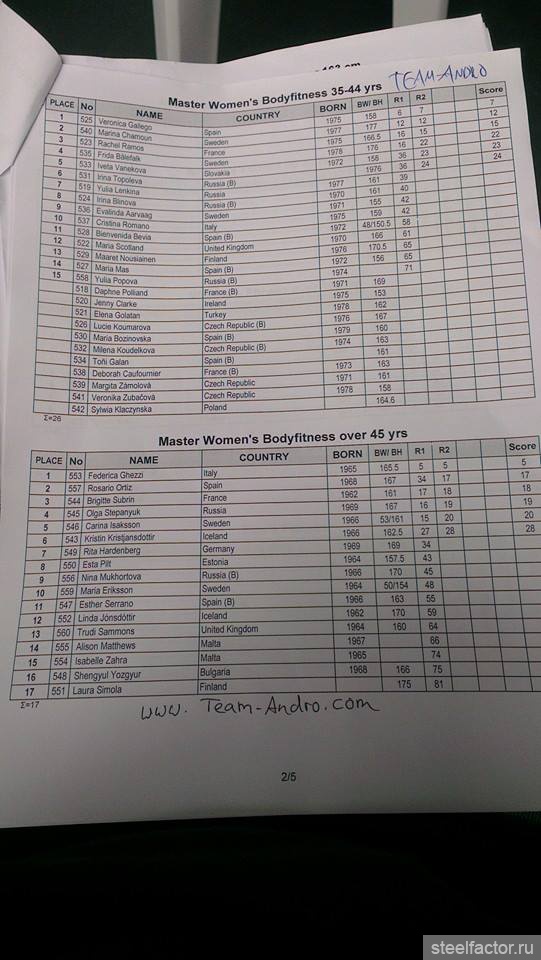 163 cm
TEAM-ANDRO
Master Women's Bodyfitness 35-44 yrs
PLACE No NAME COUNTRY BORN BW/ BH R1 R2 Score
1 525 Veronica Gallego Spain 1975 158 6 7 7
2 540 Marina Chamoun Sweden 1977 177 12 12 12
3 523 Rachel Ramos France 1975 166.5 16 15 15
4 535 Frida Bälefalk Sweden 1978 176 16 22 22
5 533 Iveta Vanekova Slovakia 1972 158 36 23 23
6 531 Irina Topoleva Russia (B) 1976 36 24 24
7 519 Yulia Lenkina Russia 1977 161 39
8 524 Irina Blinova Russia (B) 1970 161 40
9 536 Evalinda Aarvaag Sweden 1971 155 42
10 537 Cristina Romano Italy 1975 159 42
11 528 Bienvenida Bevia Spain (B) 1972 48/150.5 58
12 522 Maria Scotland United Kingdom 1970 166 61
13 529 Maaret Nousiainen Finland 1976 170.5 65
14 527 Maria Mas Spain (B) 1972 156 65
15 558 Yulia Popova Russia (B) 1974 71
518 Daphne Polliand France (B) 1971 169
520 Jenny Clarke Ireland 1975 153
521 Elena Golatan Turkey 1978 162
526 Lucie Koumarova Czech Republic (B) 1976 167
530 Maria Bozinovska Spain (B) 1979 160
532 Milena Koudelkova Czech Republic (B) 1974 163
534 Toñi Galan Spain (B) 161
538 Deborah Caufournier France (B) 1973 163
539 Margita Zámolová Czech Republic 1971 161
541 Veronika Zubačová Czech Republic 1978 158
542 Sylwia Klaczynska Poland 164.6
Σ=26
Master Women's Bodyfitness over 45 yrs
PLACE No NAME COUNTRY BORN BW/ BH R1 R2 Score
1 553 Federica Ghezzi Italy 1965 165.5 5 5 5
2 557 Rosario Ortiz Spain 1968 167 34 17 17
3 544 Brigitte Subrin France 1962 161 17 18 18
4 545 Olga Stepanyuk Russia 1969 167 16 19 19
5 546 Carina Isaksson Sweden 1966 53/161 15 20 20
6 543 Kristin Kristjansdottir Iceland 1966 162.5 27 28 28
7 549 Rita Hardenberg Germany 1969 169 34
8 550 Esta Pilt Estonia 1964 157.5 43
9 556 Nina Mukhortova Russia (B) 1966 170 45
10 559 Maria Eriksson Sweden 1964 50/154 48
11 547 Esther Serrano Spain (B) 1966 163 55
12 552 Linda Jónsdóttir Iceland 1962 170 59
13 560 Trudi Sammons United Kingdom 1964 160 64
14 555 Alison Matthews Malta 1967 66
15 554 Isabelle Zahra Malta 1965 74
16 548 Shengyul Yozgyur Bulgaria 1968 166 75
17 551 Laura Simola Finland 175 81
Σ=17
www. Team-Andro.com
2/5
steelfactor.ru